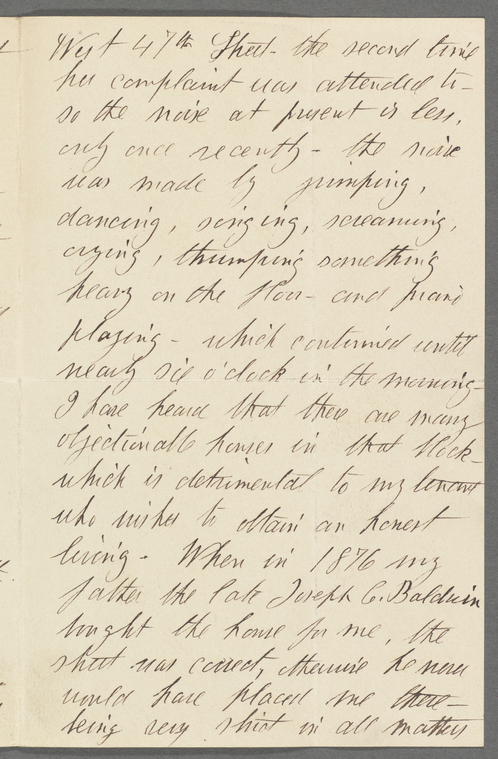 West 47th Street - the second time
her complaint was attended to -
so the noise at present is less,
only once recently - the noise
was made by jumping,
dancing, singing, screaming,
crying, thumping something
heavy on the floor - and piano
playing - which continued until
nearly six o'clock in the morning -
I have heard that there are many
objectionable houses in that block -
which is detrimental to my tenant
who wishes to obtain an honest
living - When in 1876 my
father the late Joseph C. Baldwin
bought the house for me, the
street was correct, otherwise he never
would have placed me there -
being very strict in all matters